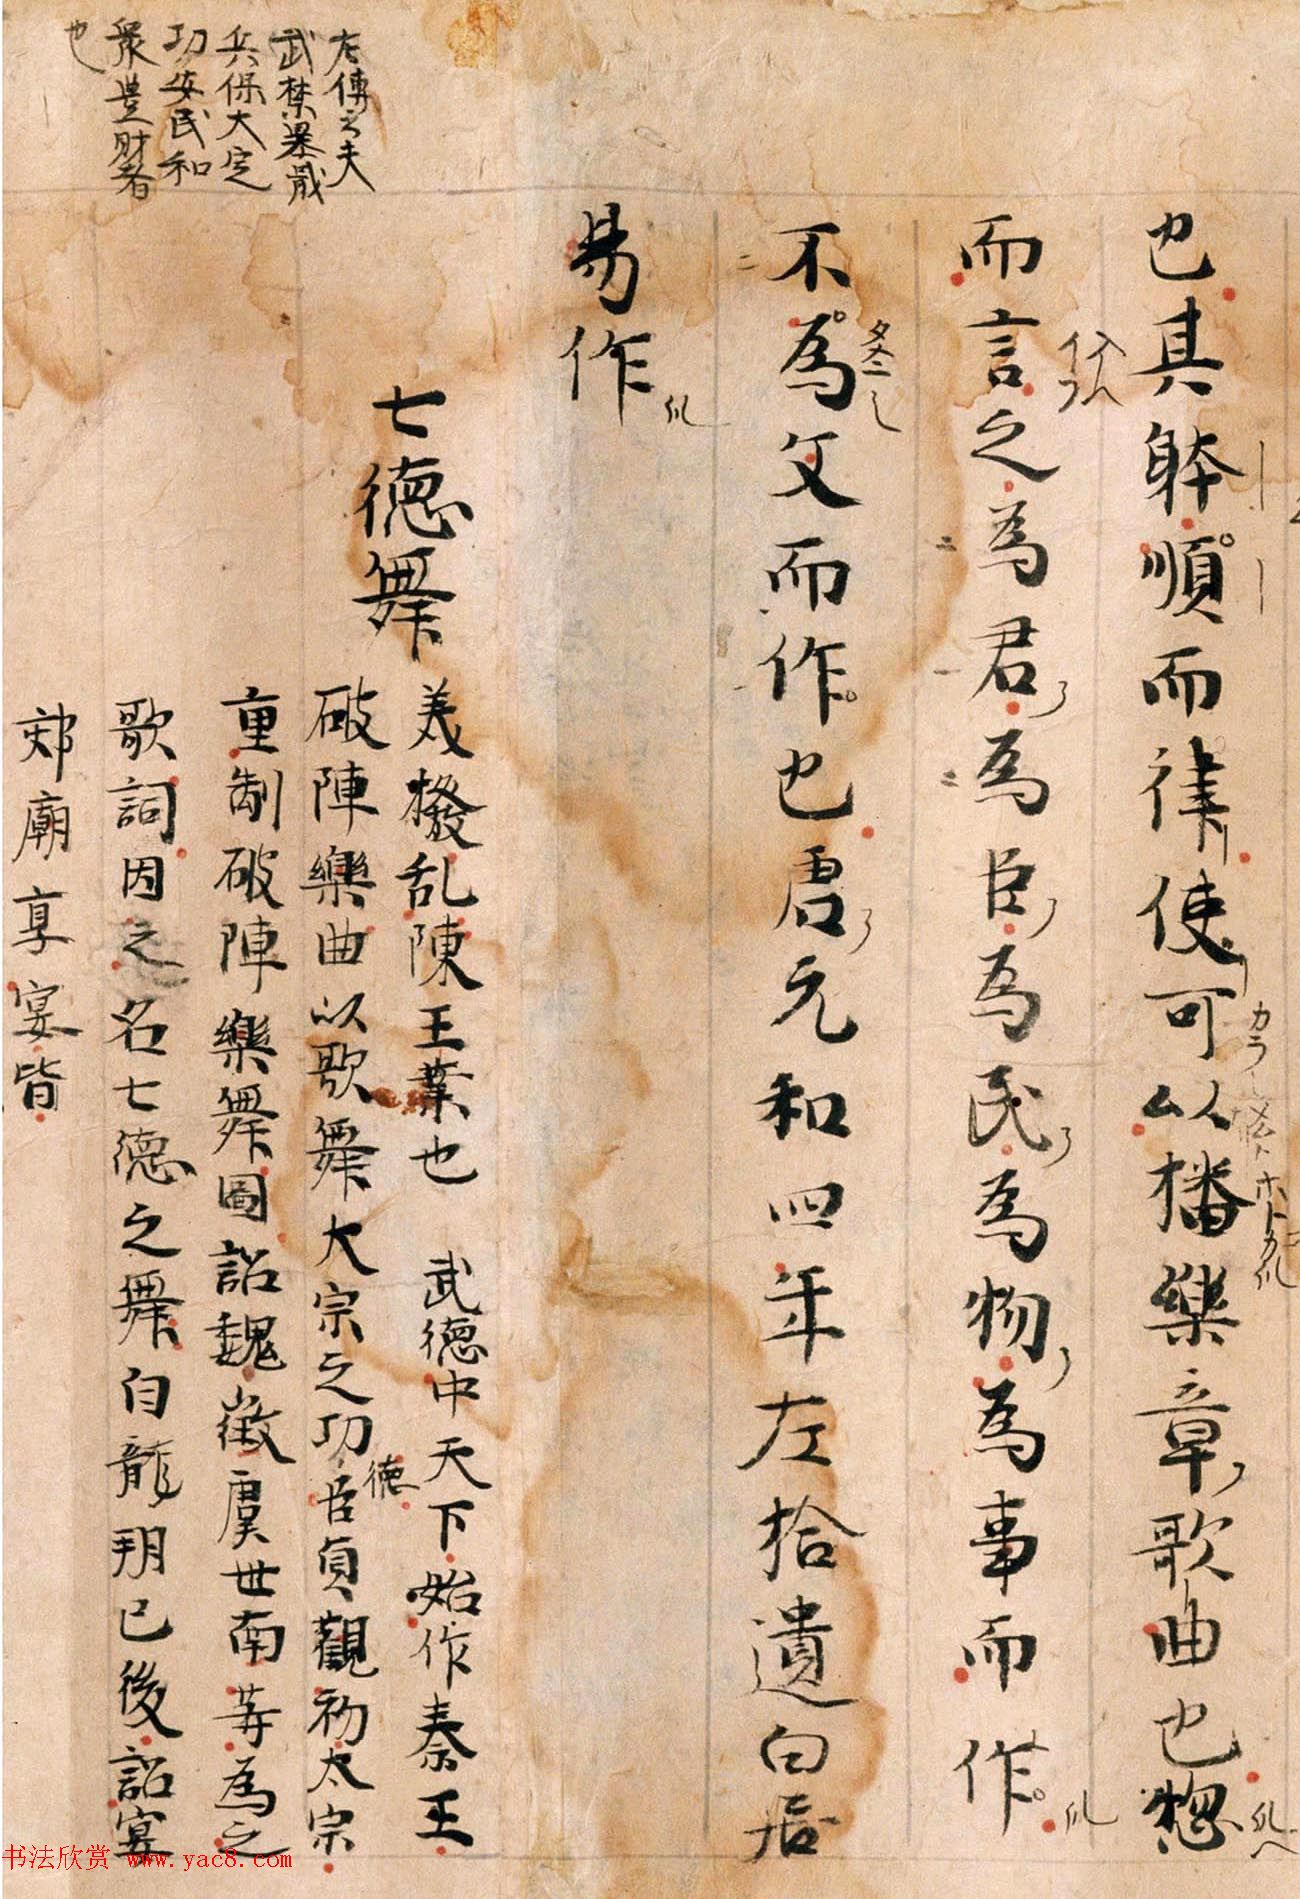 也其躰順而律使可以播樂章歌曲也惣
而言之為君為臣為民為物為事而作
不為文而作也唐元和四年左拾遺白居
易作
七德舞
美撥乱陳王業也　武德中天下始作秦王
破陣樂曲以歌舞大宗之功臣貞觀初太宗
德
重制破陣樂舞圖詔魏徵虞世南等為之
歌詞因之名七德之舞自龍朔已後詔宴
郊廟享宴皆
左傳云夫
武禁暴戢
兵保大定
功安民和
衆豊財者
也
书法欣赏 www.yac8.com